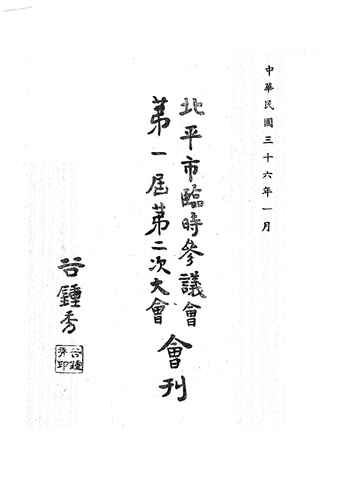 中華民國三十六年一月
北平市臨時參議會
第一屆第二次大會
會刊
谷鍾秀
谷鍾
秀印